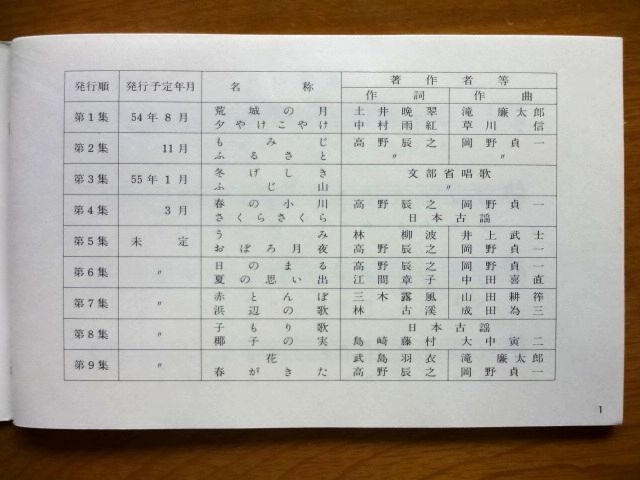 発行順 発行予定年月 名称 著作者等
作詞 作曲
第1集 54年8月 荒城の月 土井晩翠 滝廉太郎
夕やけこやけ 中村雨紅 草川信
第2集 11月 もみじ 高野辰之 岡野貞一
ふるさと 〃 〃
第3集 55年1月 冬げしき 文部省唱歌
ふじ山 〃
第4集 3月 春の小川 高野辰之 岡野貞一
さくらさくら 日本古謡
第5集 未定 うみ 林柳波 井上武士
おぼろ月夜 高野辰之 岡野貞一
第6集 〃 日のまる 高野辰之 岡野貞一
夏の思い出 江間章子 中田喜直
第7集 〃 赤とんぼ 三木露風 山田耕筰
浜辺の歌 林古溪 成田為三
第8集 〃 子もり歌 日本古謡
椰子の実 島崎藤村 大中寅二
第9集 〃 花 武島羽衣 滝廉太郎
春がきた 高野辰之 岡野貞一
1